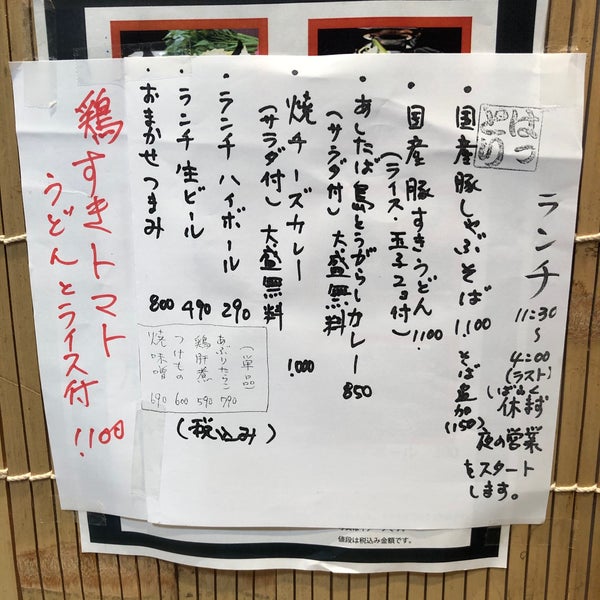 ランチ
11:30
〜
4:00
(ラスト)
しばらく
休まず
夜の営業
をスタート
します。
はつとり
・国産豚しゃぶそば 1,100 そば畳加(150)
・国産豚すきうどん 1100
(ライス・玉子2ヨ付)
・あしたば島とうがらしカレー 850
(サラダ付) 大盛無料
・焼チーズカレー 1,000
(サラダ付) 大盛無料
・ランチハイボール 290
・ランチ生ビール 490
・おまかせつまみ 800
(単品)
あぶりたらこ 790
鶏肝煮 590
つけもの 600
焼味噌 690
(税込み)
鶏すきトマト
うどんとライス付 1,100
値段は税込み金額です。